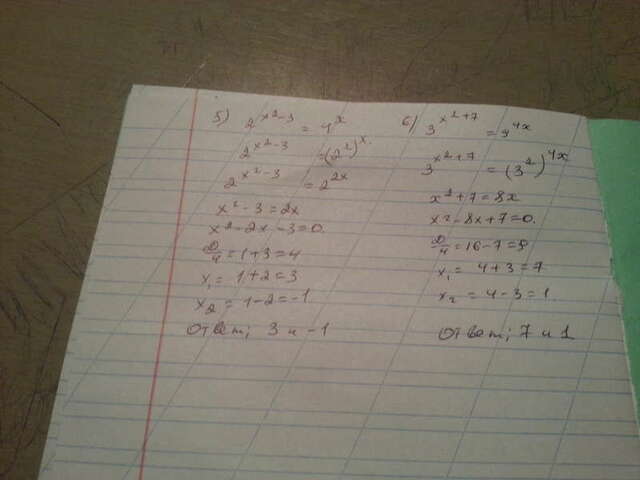 5) 2^{x²-3} = 4^x
2^{x²-3} = (2²)^x.
2^{x²-3} = 2^{2x}
x² - 3 = 2x
x² - 2x - 3 = 0.
D/4 = 1 + 3 = 4
x₁ = 1 + 2 = 3
x₂ = 1 - 2 = -1
Ответ; 3 и -1
6) 3^{x²+7} = 9^{4x}
3^{x²+7} = (3²)^{4x}
x² + 7 = 8x
x² - 8x + 7 = 0.
D/4 = 16 - 7 = 9
x₁ = 4 + 3 = 7
x₂ = 4 - 3 = 1.
Ответ; 7 и 1